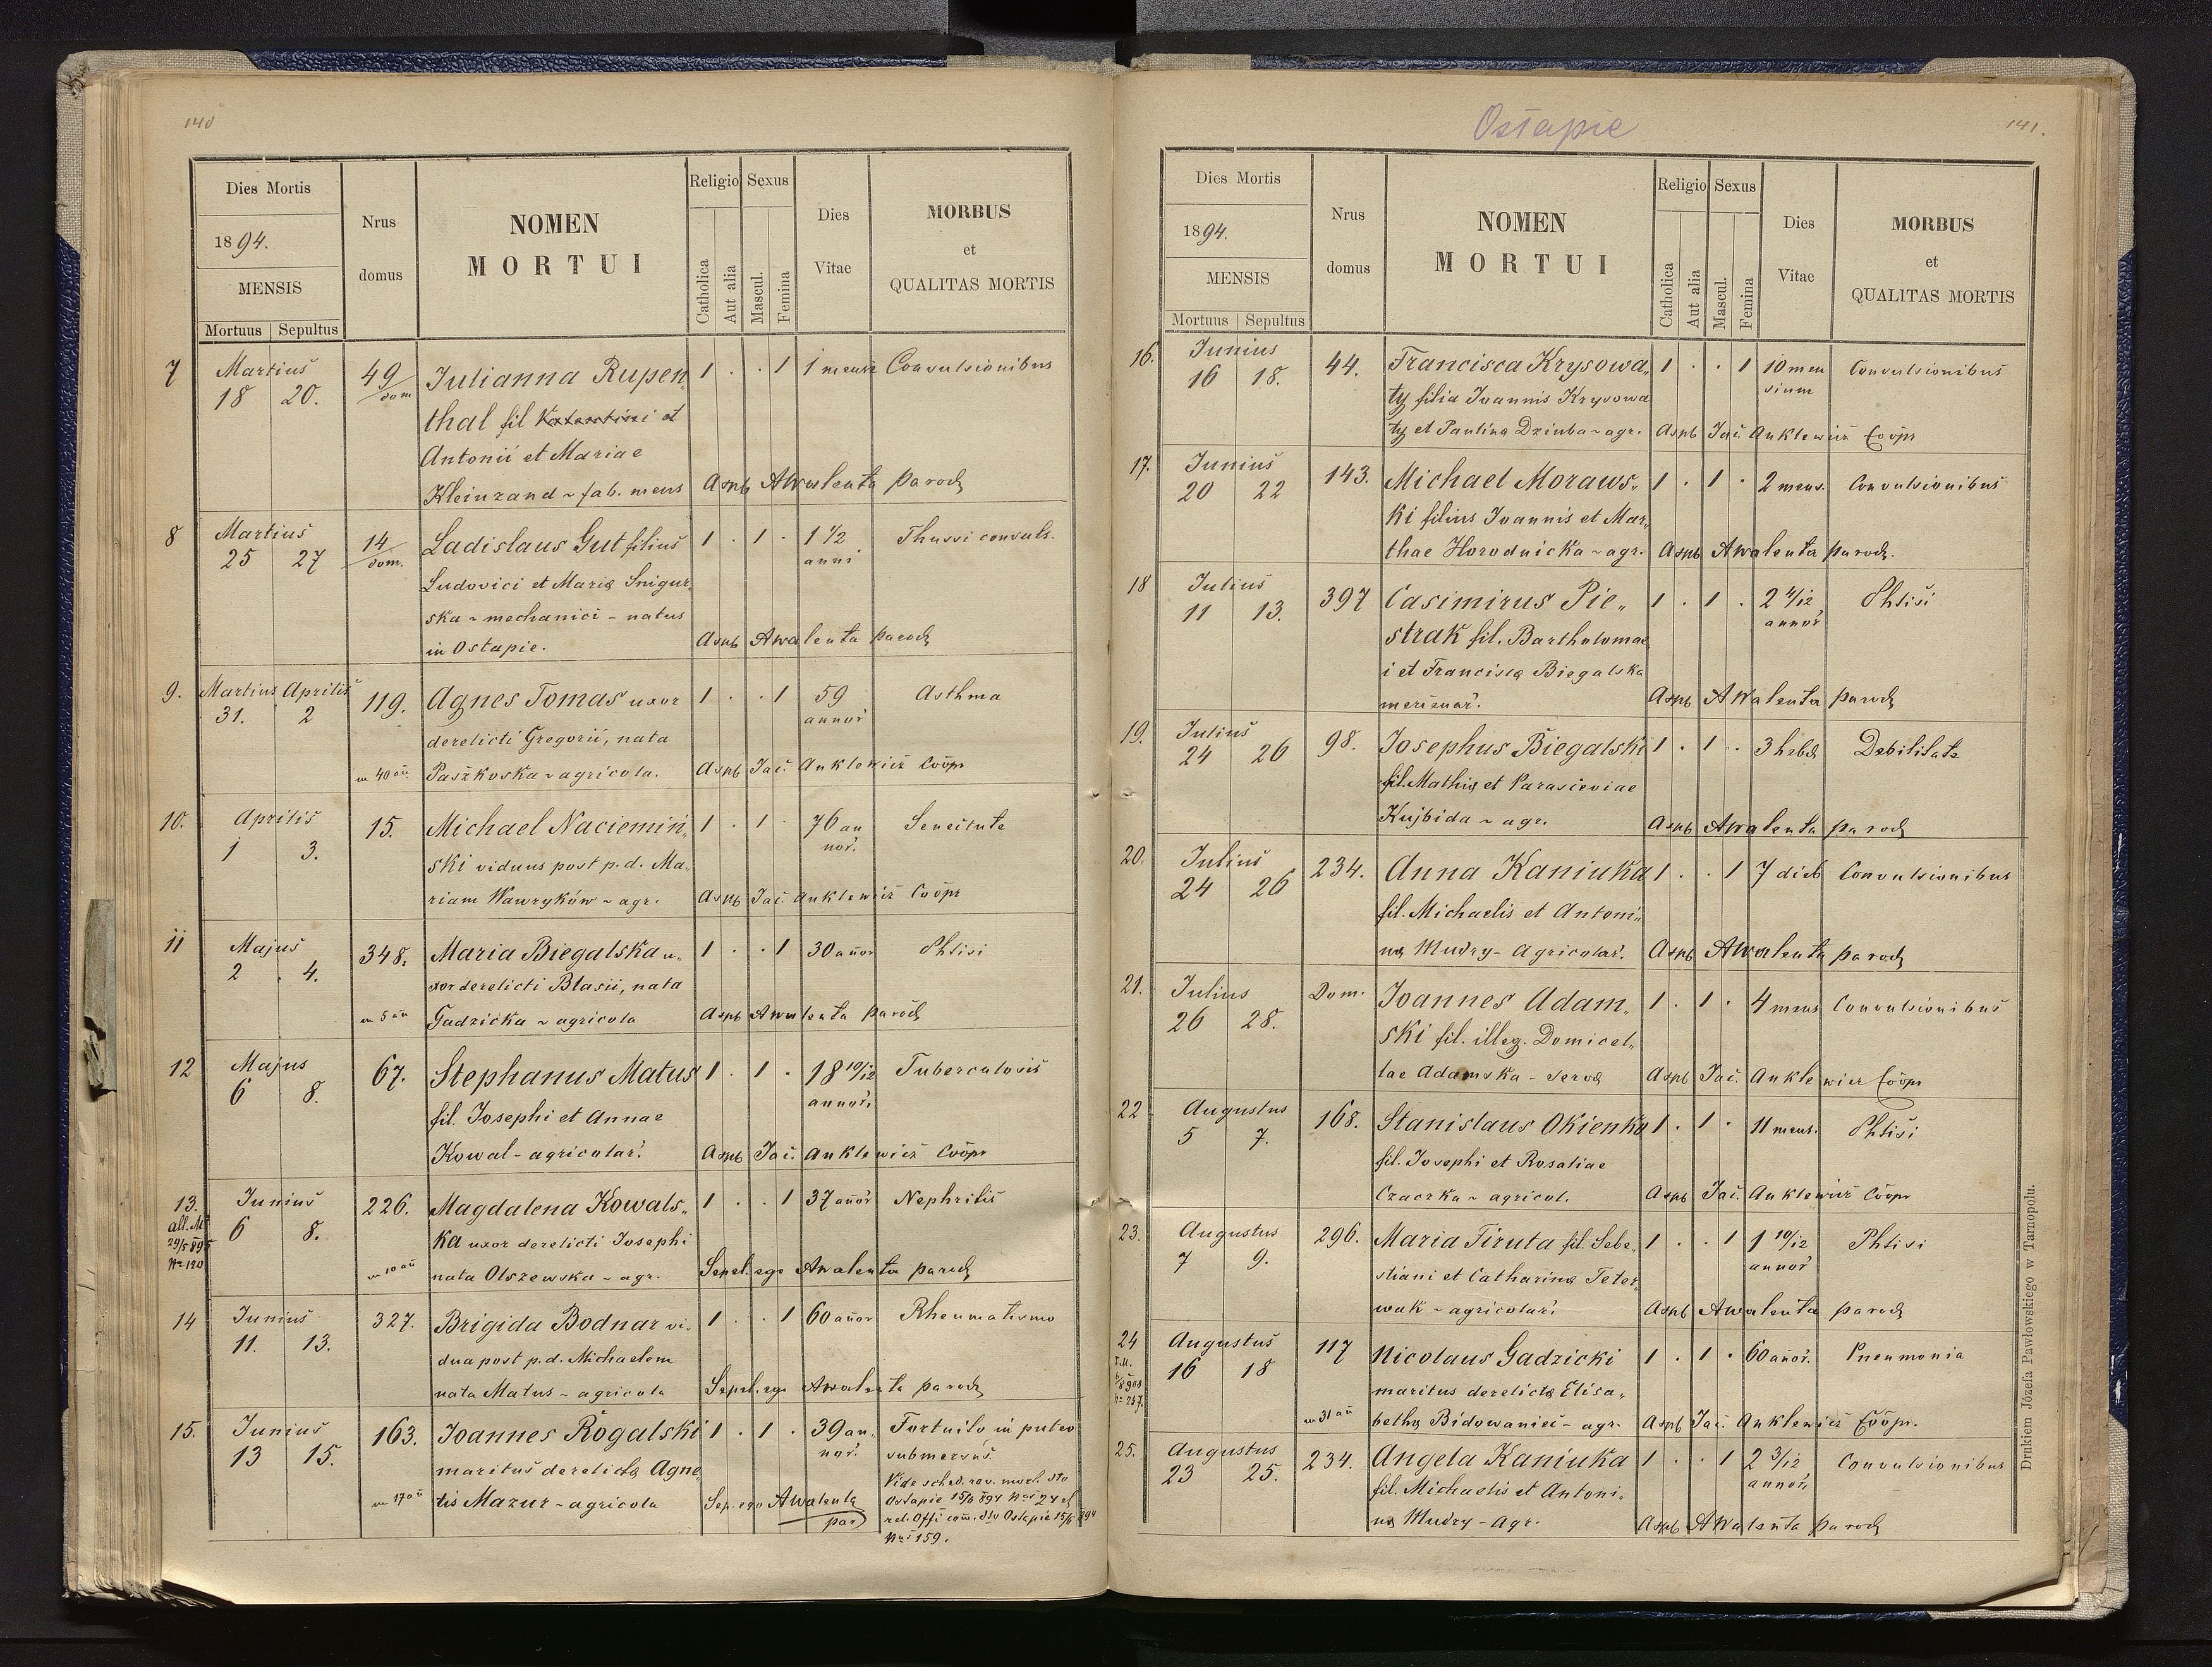 140
Dies Mortis
1894.
MENSIS
Mortuus Sepultus
Nrus
domus
NOMEN
MORTUI
Religio
Catholica
Aut alia
Sexus
Mascul.
Femina
Dies
Vitae
MORBUS
et
QUALITAS MORTIS
7 Martius 49/dom Julianna Rupen„ 1 . . 1 1 mensis Convulsionibus
18 20. thal fil. et
Antonii et Mariae
Kleinzand ~ fab. mens Aspb AWalenta paroch
8 Martius 14/dom. Ladislaus Gut filius 1 . 1 . 1 1/2 Thussi convuls.
25 27 Ludovici et Mariæ Snigur„ anni
ska ~ mechanici - natus
in Ostapie. Aspb AWalenta paroch
9. Martius Aprilis 119. Agnes Tomas uxor 1 . . 1 59 Asthma
31. 2 derelicti Gregorii, nata annor̃
m 40 añ Paszkoska ~ agricola. Aspb Jac. Anklewicz Coöpr
10. Aprilis 15. Michael Naciemiń„ 1 . 1 . 76 an Senectute
1 3. ski viduus post p. d. Ma„ nor̃.
riam Wawryków ~ agr. Aspb Jac. Anklewicz Coöpr
11 Majus 348. Maria Biegalska u„ 1 . . 1 30 añor Phtisi
2 4. xor derelicti Blasii, nata
m 5 añ Gadzicka ~ agricola Aspb AWalenta paroch
12 Majus 67. Stephanus Matus 1 . 1 . 18 10/12 Tuberculosis
6 8. fil. Josephi et Annae annor̃.
Kowal - agricolar̃. Aspb Jac. Anklewicz Coöpr
13. Junius 226. Magdalena Kowals„ 1 . . 1 37 añor̃ Nephritis
all. M
29/5 895
Nr 120
6 8. ka uxor derelicti Josephi
m 10 añ nata Olszewska ~ agr. Sepel. ego AWalenta paroch
14 Junius 327. Brigida Bodnar vi„ 1 . . 1 60 añor Rheumatismo
11. 13. dua post p. d. Michaelem
nata Matus ~ agricola Sepel. ego AWalenta paroch
15. Junius 163. Joannes Rogalski 1 . 1 . 39 an„ Fortuito in puteo
13 15. maritus derelictæ Agne„ nor̃. submersus.
m 17 añ tis Mazur ~ agricola Sep. ego AWalenta par
Vide sched. rev. mort. dto
Ostapie 15/6 894 Nro 24 et
rel. Offi com. dto Ostapie 15/6 894
Nro 159.
Ostapie
141.
Dies Mortis
1894.
MENSIS
Mortuus Sepultus
Nrus
domus
NOMEN
MORTUI
Religio
Catholica
Aut alia
Sexus
Mascul.
Femina
Dies
Vitae
MORBUS
et
QUALITAS MORTIS
16. Junius 44. Francisca Krysowa„ 1 . . 1 10 men Convulsionibus
16 18. ty filia Joannis Krysowa sium
ty et Paulinæ Dziuba ~ agr. Aspb Jac. Anklewicz Coöpr
17. Junius 143. Michael Moraws„ 1 . 1 . 2 mens. Convulsionibus
20 22 ki filius Joannis et Mar„
thae Horodnicka ~ agr. Aspb AWalenta paroch.
18 Julius 397 Casimirus Pie„ 1 . 1 . 2 4/12 Phtisi
11 13. strak fil. Bartholomae annor̃
i et Franciscæ Biegalska
merizuar̃. Aspb AWalenta paroch
19. Julius 98. Josephus Biegalski 1 . 1 . 3 hebd Debilitate
24 26 fil. Mathiæ et Parasceviae
Kujbida ~ agr. Aspb AWalenta paroch
20. Julius 234. Anna Kaniuka 1 . . 1 7 dieb Convulsionibus
24 26 fil. Michaelis et Antoni„
næ Mudry - Agricolar̃. Aspb AWalenta paroch
21. Julius Dom. Joannes Adam„ 1 . 1 . 4 mens Convulsionibus
26 28. ski fil. illeg. Domicel„
lae Adamska - servæ Aspb Jac. Anklewicz Coöpr
22 Augustus 168. Stanislaus Okienko 1 . 1 . 11 mens. Phtisi
5 7. fil. Josephi et Rosaliae
Czaczka ~ agricol. Aspb Jac. Anklewicz Coöpr
23. Augustus 296. Maria Firuta fil. Seba„ 1 . . 1 1 10/12 Phtisi
7 9. stiani et Catharinæ Teter„ annor̃
wak ~ agricolar̃. Aspb AWalenta paroch
24 Augustus 117 Nicolaus Gadzicki 1 . 1 . 60 añor̃. Pneumonia
16 18 maritus derelictæ Elisa„
m 31 añ bethæ Bidowaniec - agr. Aspb Jac. Anklewicz Coöpr.
25. Augustus 234. Angela Kaniuka 1 . . 1 2 3/12 Convulsionibus
23 25. fil. Michaelis et Antoni„ annor̃.
næ Mudry - Agr. Aspb AWalenta paroch
Drukiem Józefa Pawłowskiego w Tarnopolu.